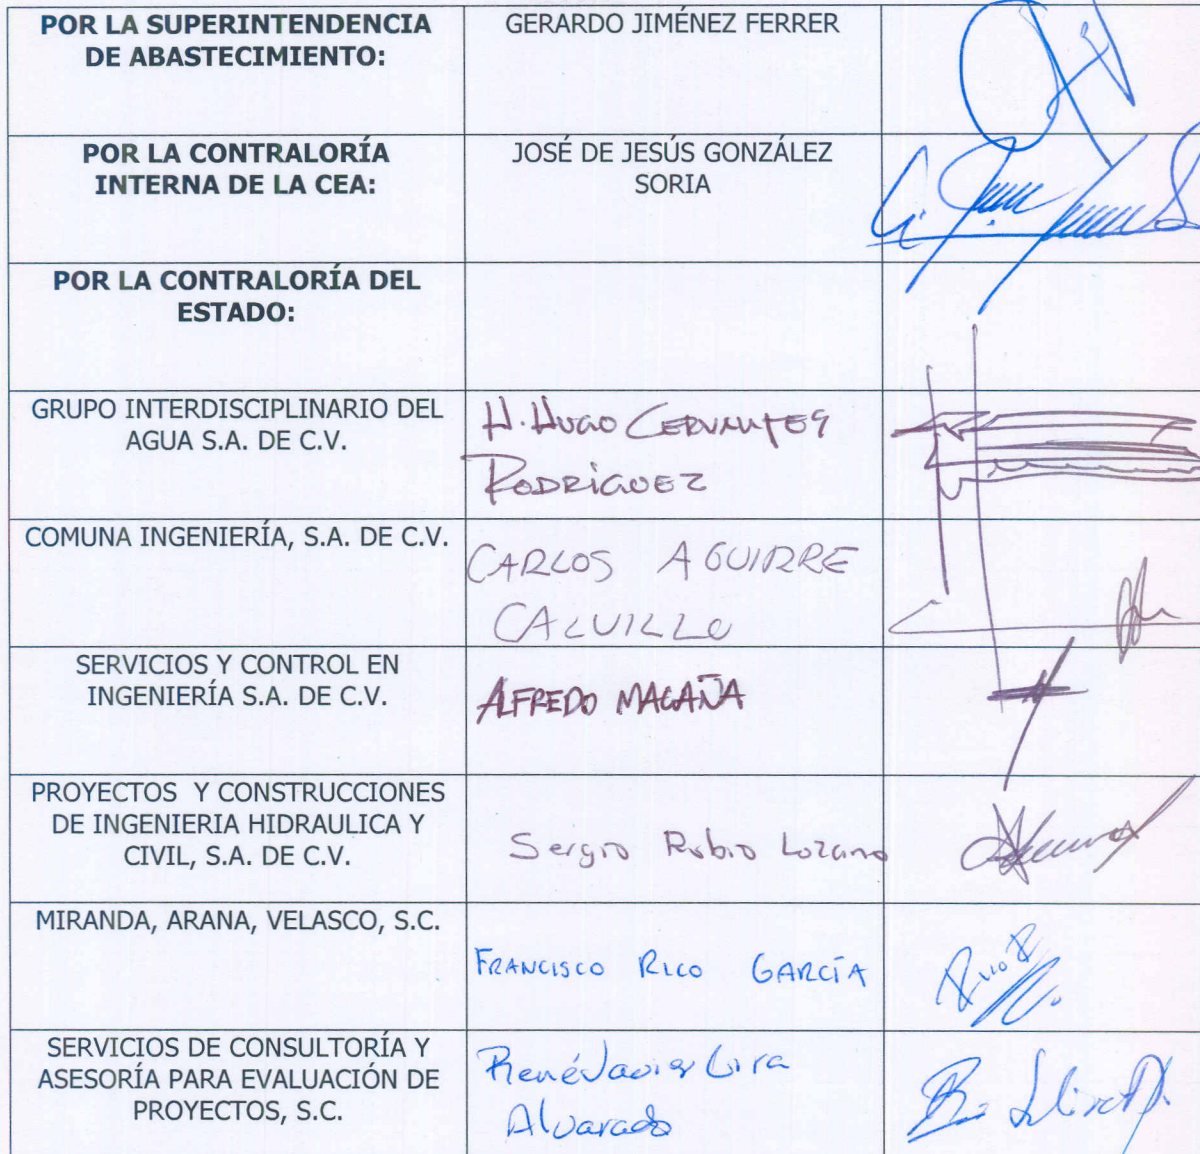 POR LA SUPERINTENDENCIA
DE ABASTECIMIENTO:
GERARDO JIMÉNEZ FERRER
POR LA CONTRALORÍA
INTERNA DE LA CEA:
JOSÉ DE JESÚS GONZÁLEZ
SORIA
POR LA CONTRALORÍA DEL
ESTADO:
GRUPO INTERDISCIPLINARIO DEL
AGUA S.A. DE C.V.
H. HUGO CERVANTES
RODRÍGUEZ
COMUNA INGENIERÍA, S.A. DE C.V.
CARLOS AGUIRRE
CALVILLO
SERVICIOS Y CONTROL EN
INGENIERÍA S.A. DE C.V.
ALFREDO MAGAÑA
PROYECTOS Y CONSTRUCCIONES
DE INGENIERIA HIDRAULICA Y
CIVIL, S.A. DE C.V.
Sergio Rubio Lozano
MIRANDA, ARANA, VELASCO, S.C.
FRANCISCO RICO GARCÍA
SERVICIOS DE CONSULTORÍA Y
ASESORÍA PARA EVALUACIÓN DE
PROYECTOS, S.C.
René Javier Lira
Alvarado